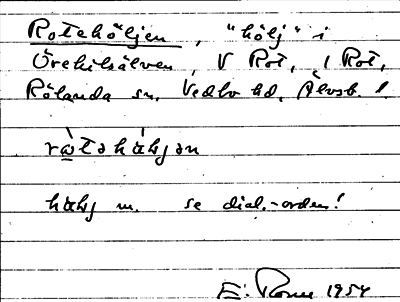 Rotehöljen, "hölj" i
Örekilsälven, V Rot, i Rot,
Rölanda sn, Vedbo hd, Älvsb. l.
ràtəhá̤ḷjən
m. se dial.-orden!
E. 1954